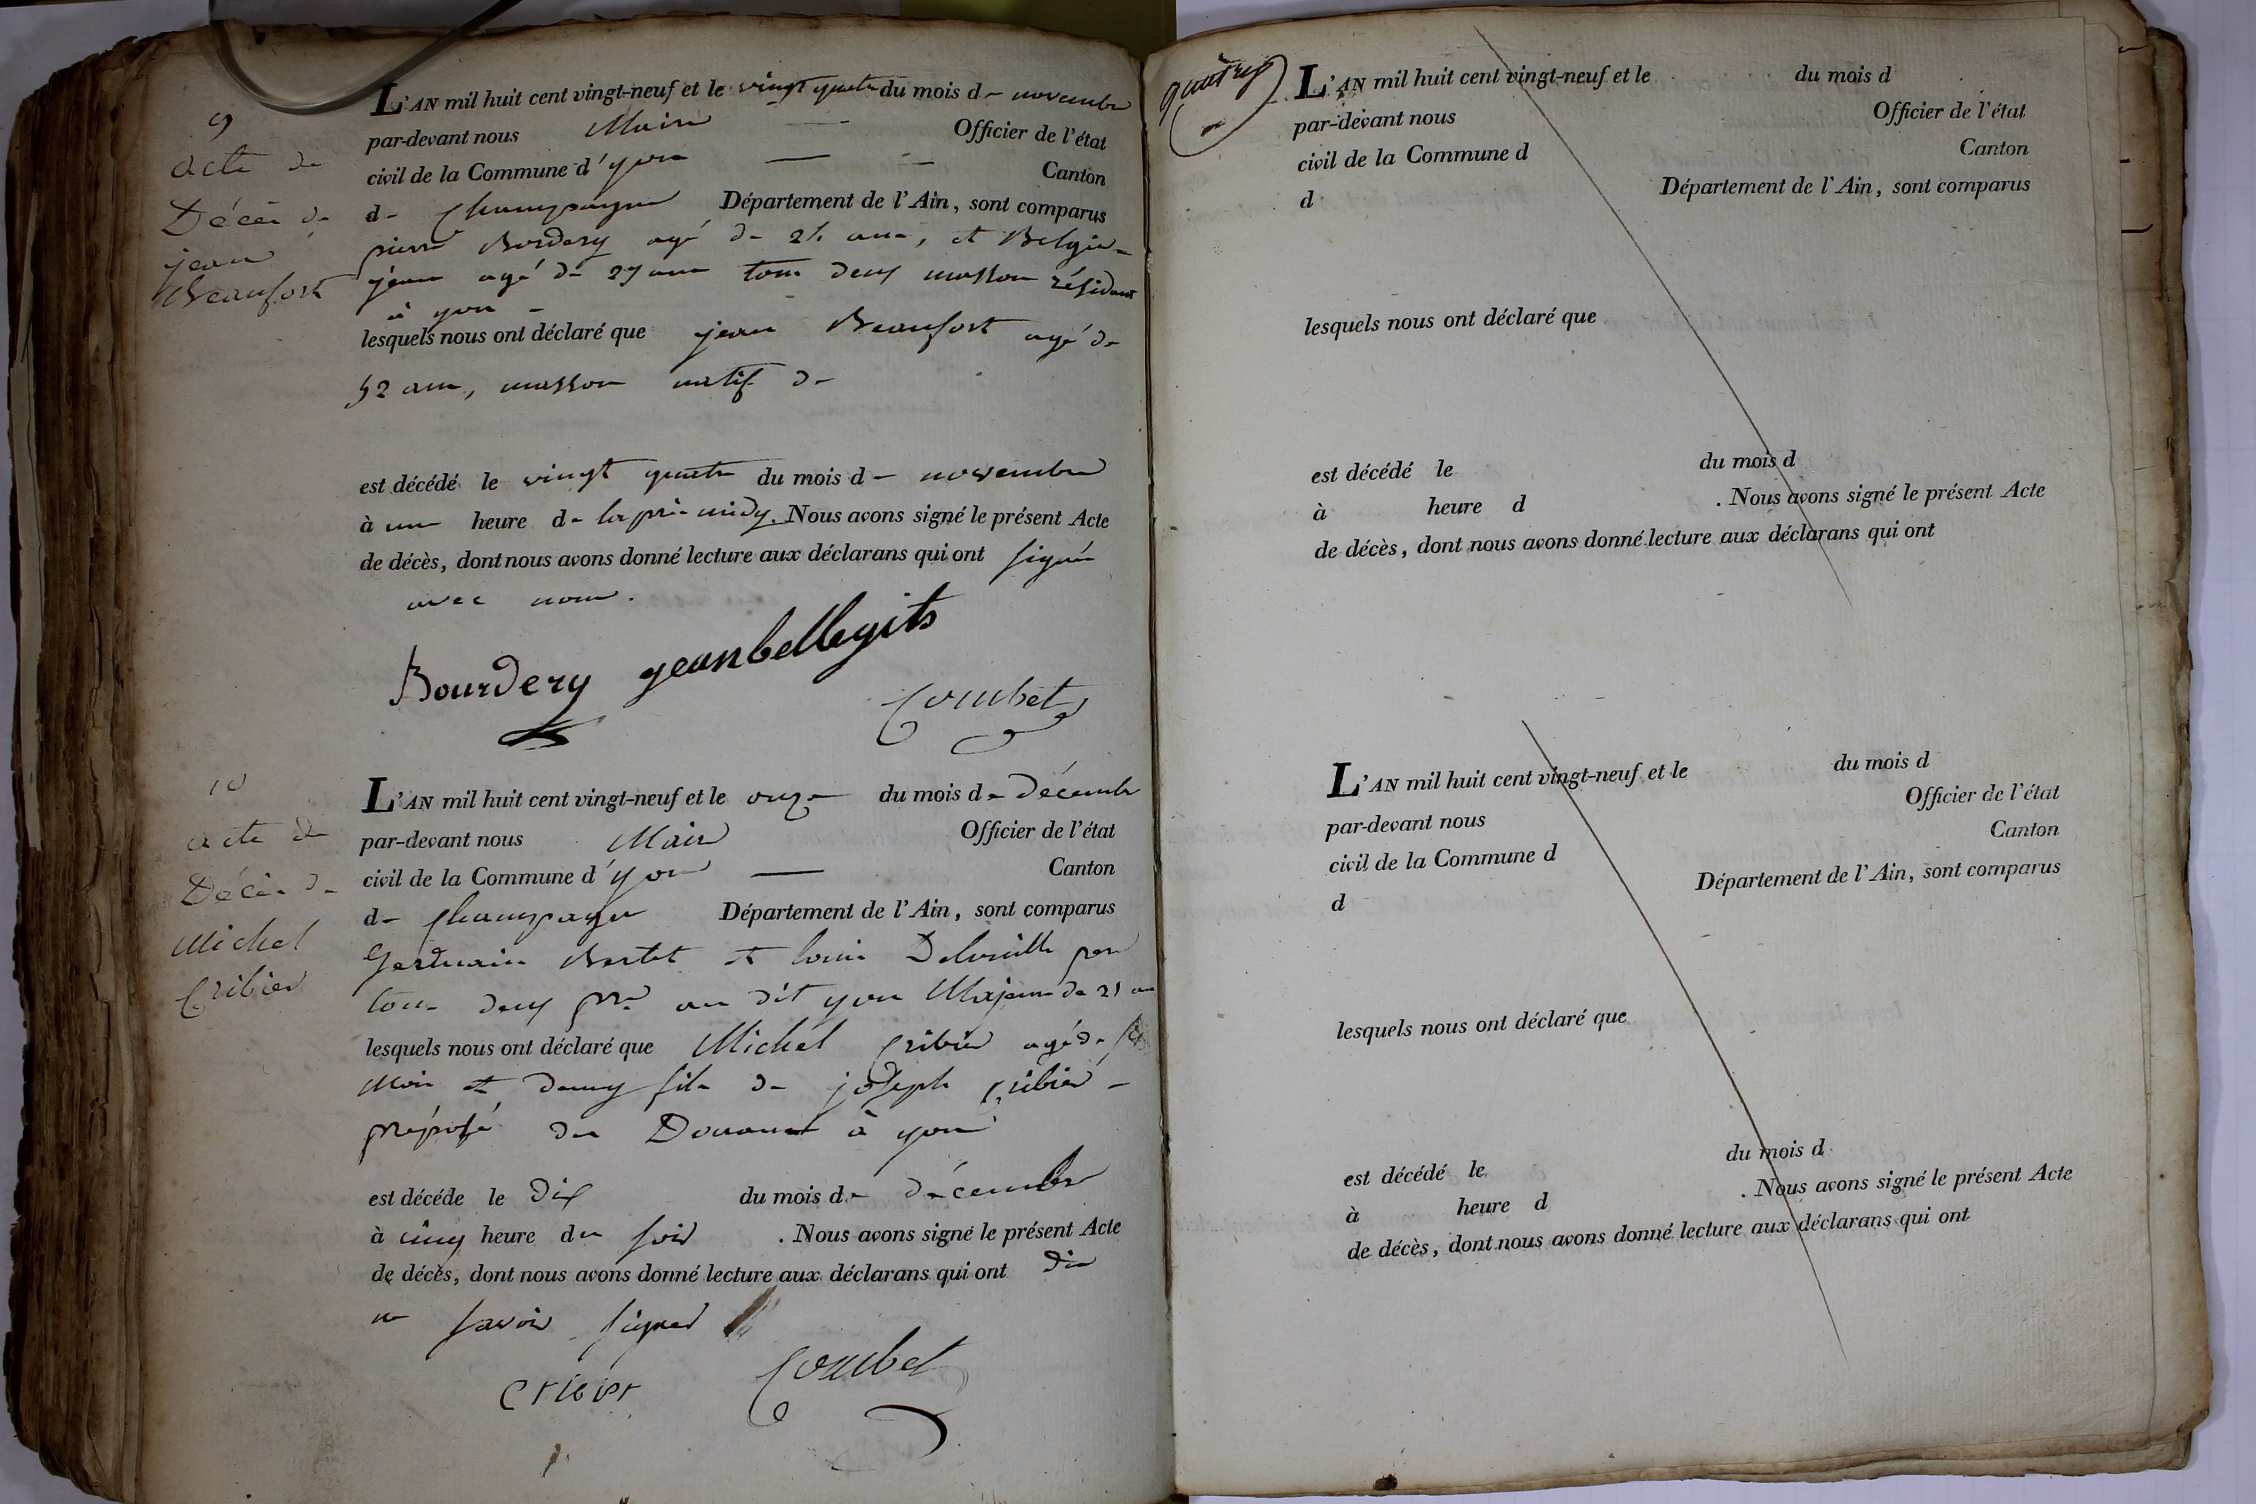 9
acte de
Décès de
jean
Beaufort
L'AN mil huit cent vingt-neuf et le vingt quatre du mois de novembre
par-devant nous Maire Officier de l'état
civil de la Commune d'yon Canton
de Champagne Département de l'Ain, sont comparus
pierre Bordery agé de 24 ans, et
jean agé de 27 ans tous deux masson résidant
à yon
lesquels nous ont déclaré que jean Beaufort agé de
52 ans, masson natif de
est décédé le vingt quatre du mois de novembre
à une heure de laprès midy. Nous avons signé le présent Acte
de décès, dont nous avons donné lecture aux déclarans qui ont signés
avec nous.
Bourdery jeanbellegits
Combet
10
acte de
Décès de
Michel
Cribier
L'AN mil huit cent vingt-neuf et le onze du mois de décembre
par-devant nous Maire Officier de l'état
civil de la Commune d'yon Canton
de Champagne Département de l'Ain, sont comparus
Germain Bertet et louis
tous deux au dit yon Majeurs de 21 ans
lesquels nous ont déclaré que Michel Cribier agé de
Mois et demy fils de joseph Cribier
préposé des Douanes à yon
est décédé le Dix du mois de décembre
à cinq heure du soir . Nous avons signé le présent Acte
de décès, dont nous avons donné lecture aux déclarans qui ont dis
ne savoir signer
cribier Combet
quatre
L'AN mil huit cent vingt-neuf et le du mois d
par-devant nous Officier de l'état
civil de la Commune d Canton
d Département de l'Ain, sont comparus
lesquels nous ont déclaré que
est décédé le du mois d
à heure d . Nous avons signé le présent Acte
de décès, dont nous avons donné lecture aux déclarans qui ont
L'AN mil huit cent vingt-neuf et le du mois d
par-devant nous Officier de l'état
civil de la Commune d Canton
d Département de l'Ain, sont comparus
lesquels nous ont déclaré que
est décédé le du mois d
à heure d . Nous avons signé le présent Acte
de décès, dont nous avons donné lecture aux déclarans qui ont